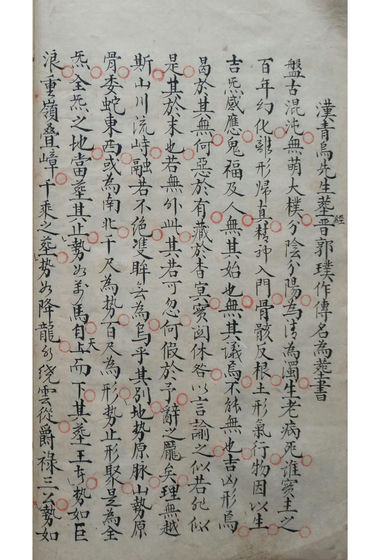 漢青烏先生葬經晋郭璞作傳名為葬書
盤古混沌無萌大樸分陰分陽為清為濁生老病死誰實主之
百年幻化離形歸真精神入門骨骸反根土形氣行物因以生
吉氣感應鬼福及人無其始也無其議焉不能無也吉凶形焉
曷於其無何惡於有藏於杳冥實関休咎以言諭之似若死似
是其於末也若無外此其若可忽何假於予辭之厖矣理無越
斯山川流峙融若不絕雙眸若為烏乎其列地勢原脉山勢原
骨委蛇東西或為南北千尺為勢百尺為形勢止形聚是為全
氣全氣之地當葬其止勢如万馬自天上而下其葬王者勢如巨
浪重嶺疊嶂千乘之葬勢如降龍水繞雲從爵祿三公勢如